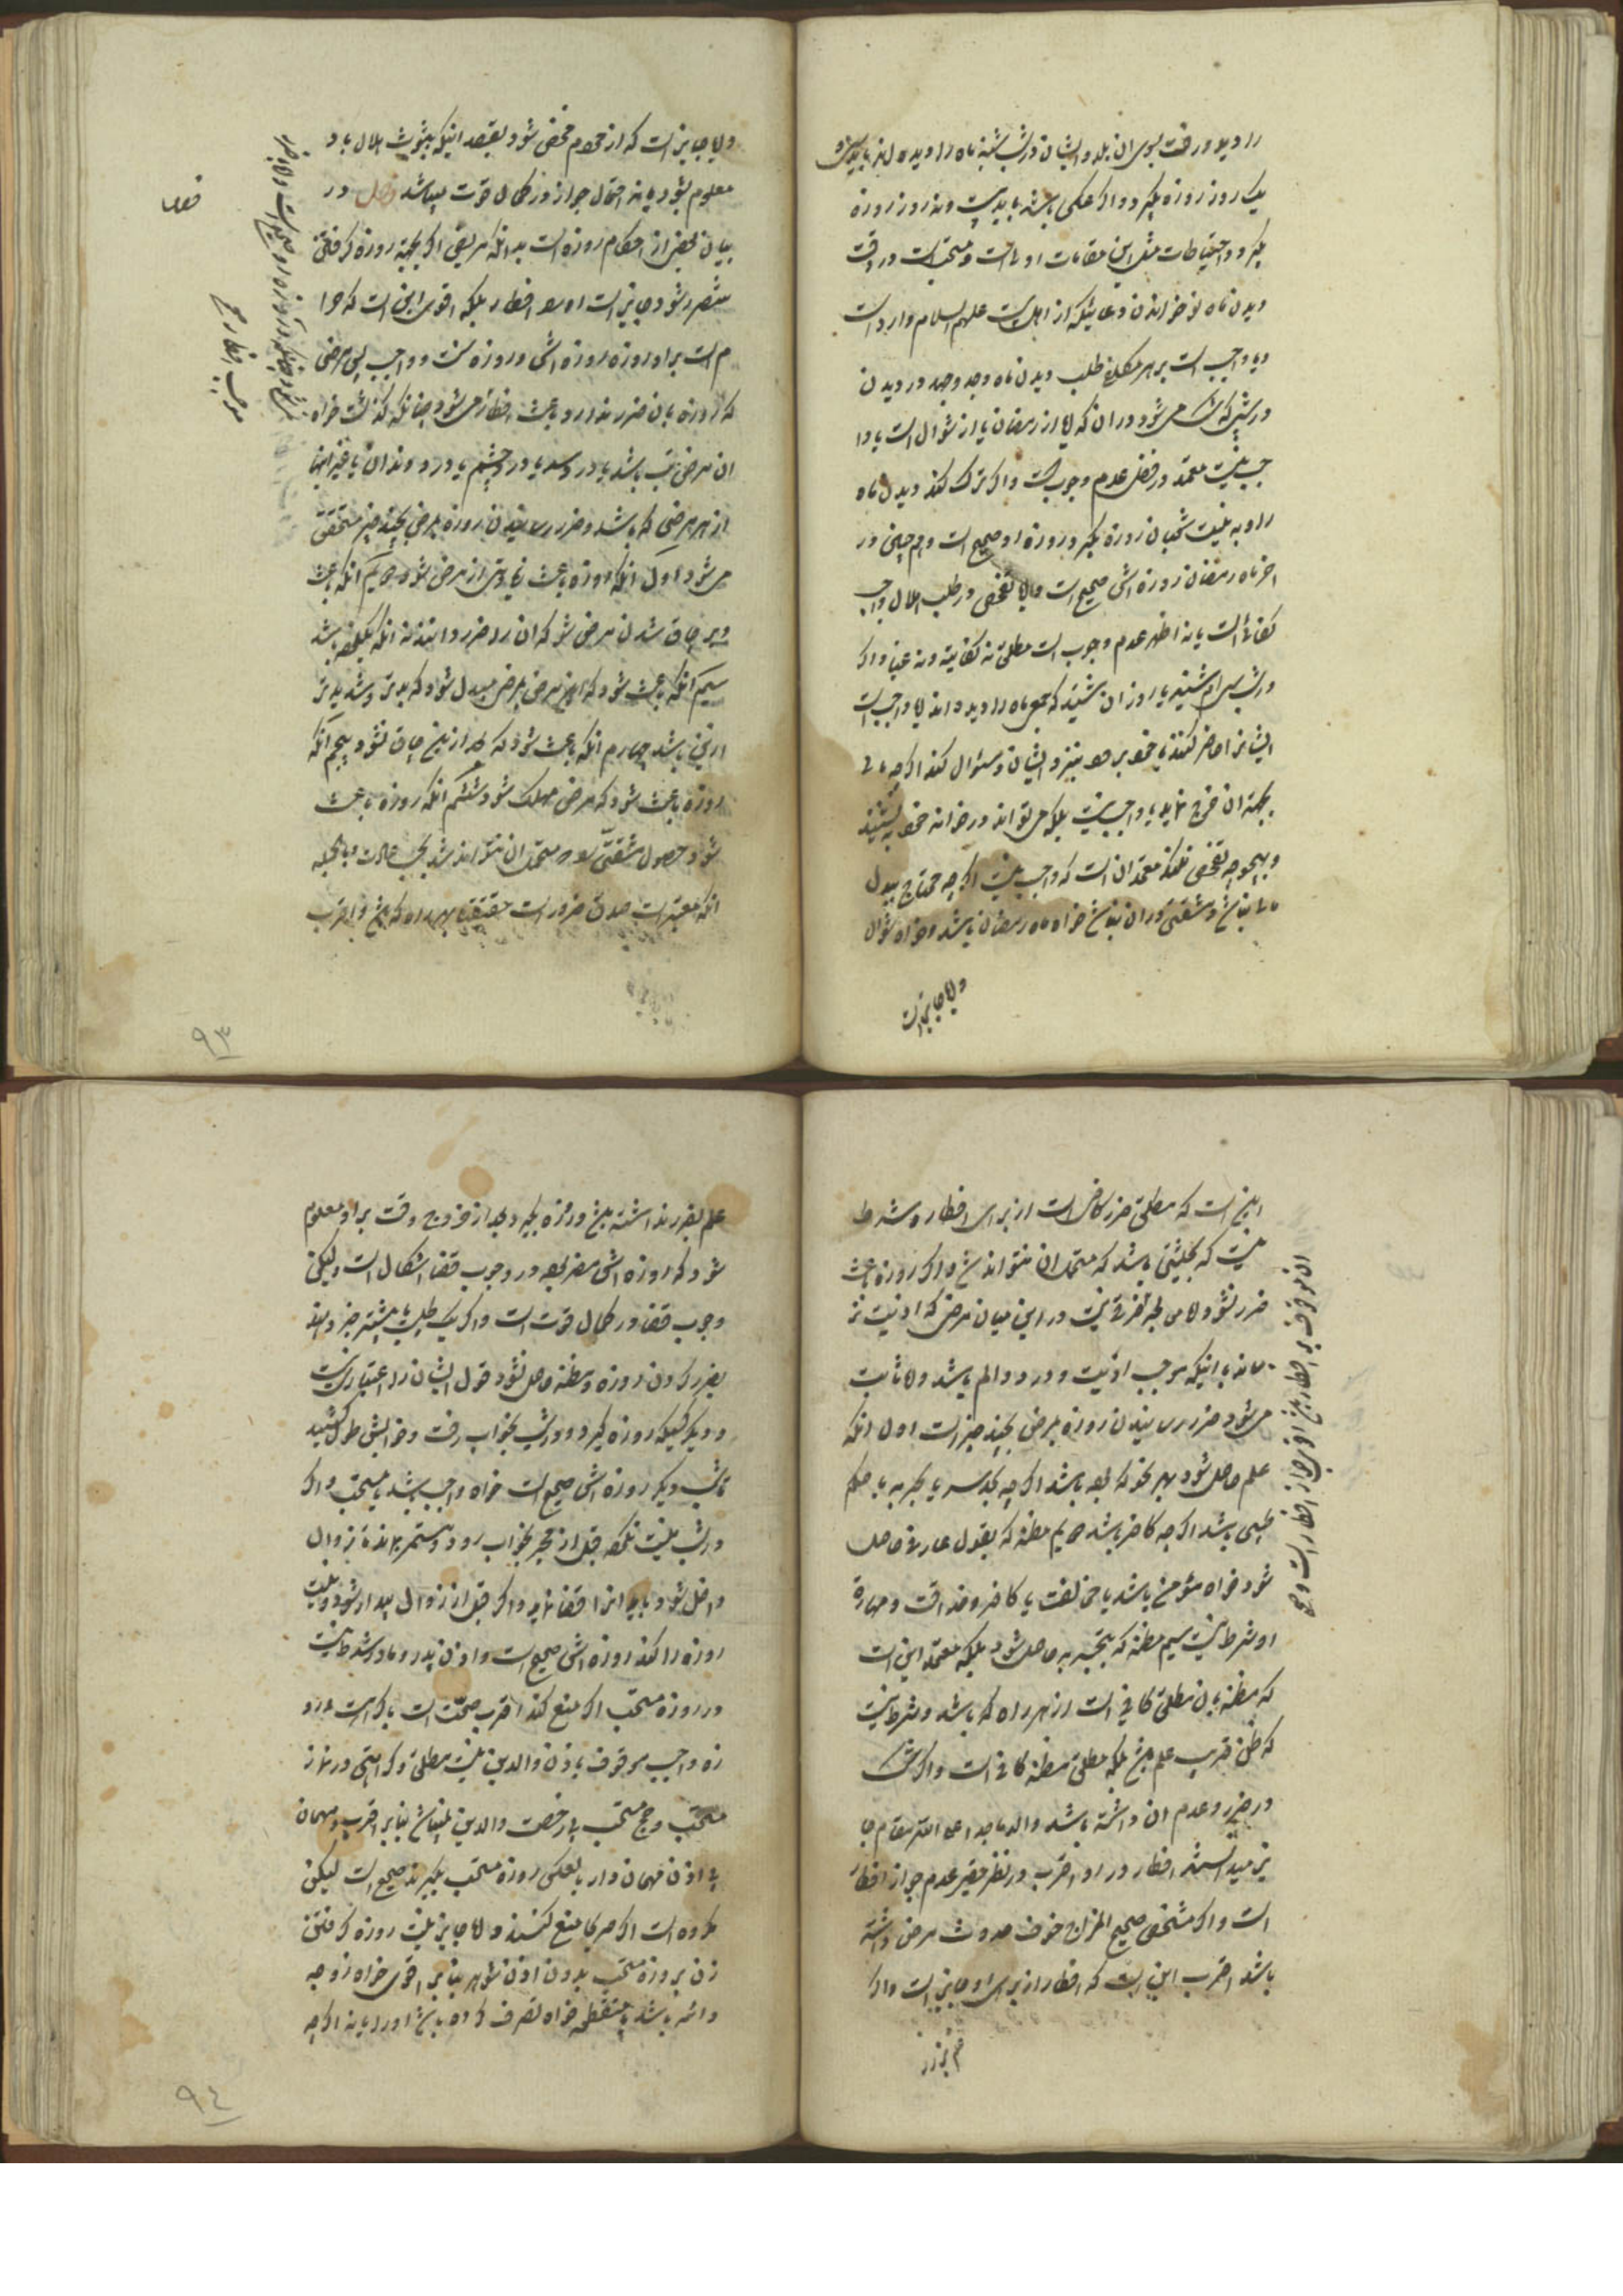 را دید و رفت بسوی ان بلد و ایشان در شب شنبه ماه را دیده اند باید
یک روز روزه بگیرد و اگر عکس باشد باید سی و نه روز روزه
بگیرد و احتیاطات مثل این مقامات اولی است و مستحب است در وقت
دیدن ماه نو خواندن دعائیکه از اهل بیت علیهم السلام وارد است
و ایا واجب است بر هر مکلف طلب دیدن ماه و جد و جهد در دیدن
در شبی که شک می شود در ان که ایا از رمضان یا از شوال است یا وا
جب نیست معتمد در فصل عدم وجوب است و اگر ترک کند دیدن ماه
را و به نیت شعبان روزه بگیرد روزه او صحیح است و هم چنین در
اخر ماه رمضان روزه اش صحیح است و ایا تفحص در طلب هلال واجب
کفائی است یا نه اظهر عدم وجوب است مطلق نه کفایی و نه عینی و اگر
در شب سی ام شنید یا روز ان شنید که جمعی ماه را دیده اند ایا واجب است
ایشانرا حاضر کند یا خود برود نزد ایشان و سئوال کند اگر چه مالی
بجهة ان خرج نماید یا واجب نیست بلکه می تواند در خانه خود بنشیند
و بهیچوجه تفحص نکند معتمد ان است که واجب نیست اگر چه محتاج ببذل
مالی نباشد و مشقتی در ان نباشد خواه ماه رمضان باشد و خواه شوال
و ایا جایز است
و ایا جایز است که از محرم مخفی شود بقصد اینکه ثبوت هلال باو
معلوم نشود یا نه احتمال جواز در کمال قوت میباشد فصل در
بیان بعض از احکام روزه است بدانکه مریض اگر بجهة روزه گرفتن
متضرر شود جایز است او را افطار بلکه اقوی این است که حرا
م است بر او روزه و روزه اش روزه سنت و واجب پس مرضی
که روزه بان ضرر ندارد باعث افطار نمی شود چنانکه گذشت خواه
ان مرض تب باشد یا درد سر یا درد چشم یا درد دندان یا غیر اینها
از هر مرضی که باشد و ضرر رسانیدن روزه بمرض بچند چیز متحقق
می شود اول انکه روزه باعث زیادتی از مرض شود دویم انکه باعث
دیر چاق شدن مرض شود که ان را ضرر دانند نه انکه یک لحظه باشد
سیم انکه باعث شود که این مرض بمرض مبدل شود که بدتر و شدیدتر
از این باشد چهارم انکه باعث شود که بعد از این چاق نشود پنجم انکه
روزه باعث شود که مرض مهلک شود ششم انکه روزه باعث
شود حصول مشقتی را که متحمل ان نتواند شد بحسب عادت و بالجمله
انکه معتبر است صدق ضرر است حقیقتا بهر راه که باشد و اقرب
موجب افطار
۹۳
این است که مطلق ضرر کافی است از برای افطار و شرط
نیست که بحیثیتی باشد که متحمل ان نتواند شد و اگر روزه باعث
ضرر نشود ایا می باید فرق نیست در این میان مرض که اذیت نر
ساند با اینکه موجب اذیت و درد و الم باشد و ایا ثابت
می شود ضرر رسانیدن روزه بمرض بچند چیز است اول انکه
علم حاصل شود بهر نحو که بوده باشد اگر چه بحدس یا بتجربه یا بحکم
طبیبی باشد اگر چه کافر باشد دویم مظنه که بقول عارف حاصل
شود خواه مؤمن باشد یا مخالف یا کافر و حذاقت و مهارة
او شرط نیست سیم مظنه که بتجربه حاصل شود بلکه معتمد این است
که مظنه بان مطلق کافی است از هر راه که باشد و شرط نیست
که ظن قریب بعلم باشد بلکه مطلق مظنه کافی است و اگر شک
در ضرر و عدم ان داشته باشد والد ماجد اعلی الله مقامه جا
یز میدانستند افطار در او و اقرب در نظر حقیر عدم جواز افطار
است و اگر شخصی صحیح المزاج خوف حدوث مرض داشته
باشد اقرب این است که افطار از برای او جایز است و اگر
علم بضرر نداشته باشد و روزه بگیرد و بعد از خروج وقت بر او معلوم
شود که روزه اش مضر بوده در وجوب قضا اشکال است و لیکن
وجوب قضا در کمال قوت است و اگر یک طبیب یا بیشتر خبر دهند
بضرر کردن روزه و مظنه حاصل نشود قول ایشان را اعتباری نیست
و دیگر کسیکه روزه گیرد و در شب بخواب رفت و خوابش طول کشید
تا شب دیگر روزه اش صحیح است خواه واجب باشد یا مستحب و اگر
در شب نیت نکرده قبل از فجر بخواب رود و مستمر بماند تا زوال
داخل شود باید انرا قضا نماید و اگر قبل از زوال بیدار شود و نیت
روزه را کند روزه اش صحیح است و اذن پدر و مادر شرط نیست
در روزه مستحب اگر منع کنند اقرب صحت است با کراهت و رو
زه واجب موقوف باذن والدین نیست مطلق و کراهتی در نماز
مستحب و حج مستحب بی رخصت والدین نمیباشد بنابر اقرب و مهمان
بی اذن مهماندار یا بعکس روزه مستحب بگیرند صحیح است لیکن
مکروه است اگر صریحا منع کنند و ایا جایز نیست روزه گرفتن
زن بروزه مستحب بدون اذن شوهر بنابر اقوی خواه زوجه
دائمه باشد یا منقطعه خواه تصرف کرده باشد او را یا نه اگر چه
۹٤